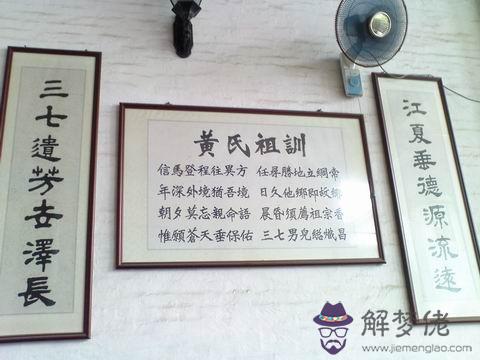 三七遺芳世澤長
黃氏祖訓
信馬登程往異方 任尋勝地立綱常
年深外境猶吾境 日久他鄉即故鄉
朝夕莫忘親命語 晨昏須薦祖宗香
惟願蒼天垂保佑 三七男兒總熾昌
江夏垂德源流遠
解梦佬
www.jiemenglao.com